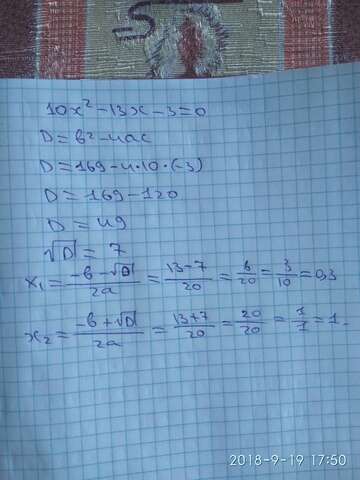 10x² - 13x - 3 = 0
D = b² - 4ac
D = 169 - 4·10·(-3)
D = 169 - 120
D = 49
√D = 7
x₁ = -b - √D / 2a = 13 - 7 / 20 = 6/20 = 3/10 = 0,3
x₂ = -b + √D / 2a = 13 + 7 / 20 = 20/20 = 1/1 = 1.
2018-9-19 17:50